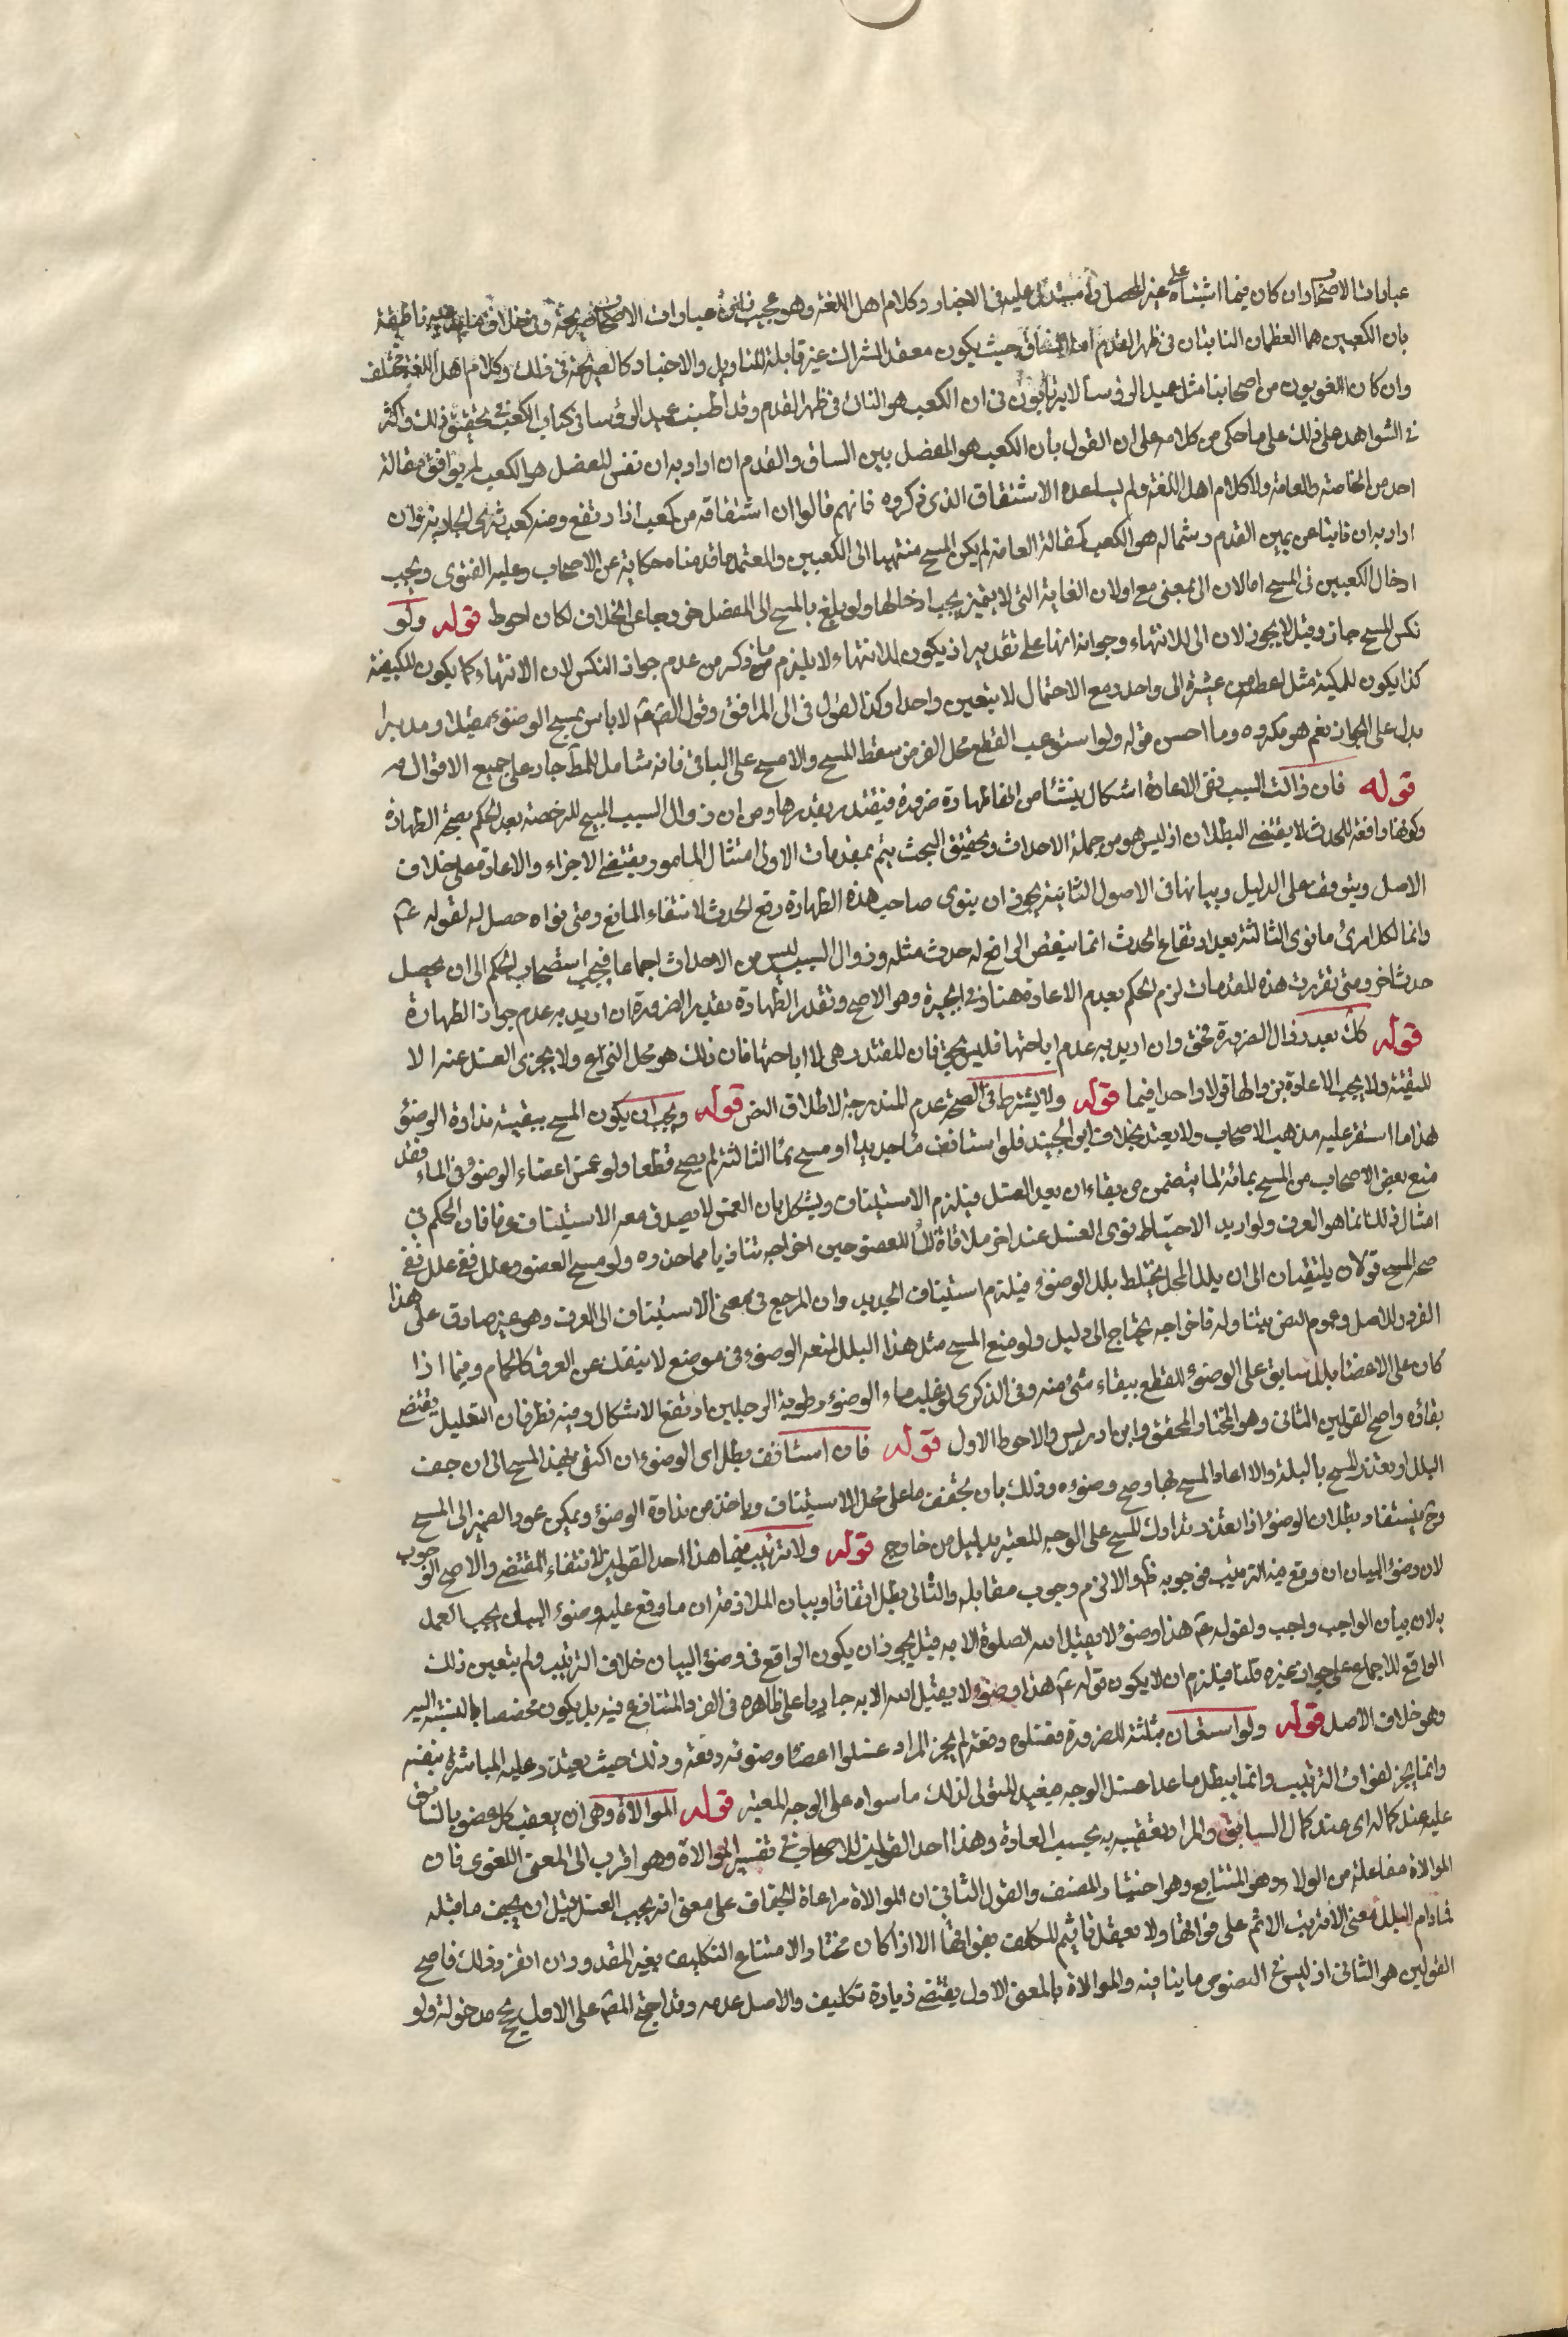 عبارات الاصحاب وان كان فيها اشتباه على غير المحصل واستدل عليه في الاخبار وكلام اهل اللغة وهو عجيب فان عبارات الاصحاب صريحة في خلاف ما يدعيه ناطقة
بان الكعبين هما العظمان النابتان في ظهر القدم امام الساق حيث يكون معقد الشراك غير قابلة للتاويل والاخبار كالصريحة في ذلك وكلام اهل اللغة مختلف
وان كان اللغويون من اصحابنا مثل عميد الروسا لا يرتابون في ان الكعب هو الناتئ في ظهر القدم وقد اطنب عميد الروسا في كتاب الكعب في تحقيق ذلك واكثر
في الشواهد على ذلك على ما حكى من كلامه على ان القول بان الكعب هو المفصل بين الساق والقدم ان اراد به ان نفس المفصل هو الكعب لم يوافق مقالة
احد من الخاصة والعامة ولا كلام اهل اللغة ولم يساعده الاشتقاق الذي ذكروه فانهم قالوا ان اشتقاقه من كعب اذا ارتفع ومنه كعب ثدي الجارية وان
اراد به ان ما نتا عن يمين القدم وشماله هو الكعب كمقالة العامة لم يكن المسح منتهيا الى الكعبين والمعتمد ما قدمناه حكاية عن الاصحاب وعليه الفتوى ويجب
ادخال الكعبين في المسح اما لان الى بمعنى مع او لان الغاية التي لا يتميز يجب ادخالها ولو بلغ بالمسح الى المفصل خروجا عن الخلاف لكان احوط قوله ولو
نكس المسح جاز وقيل لا يجوز لان الى للانتهاء وجوابه انها على تقدير ان يكون للانتهاء لا يلزم ما ذكر من عدم جواز النكس لان الانتهاء كما يكون للكيفية
كذا يكون للكمية مثل اعط من عشرة الى واحد ومع الاحتمال لا يتعين واحد وكذا القول في الى المرافق وقول الصادق ع لا باس بمسح الوضوء مقبلا ومدبرا
يدل على الجواز نعم هو مكروه وما احسن قوله ولو استوعب القطع محل الفرض سقط المسح والا مسح على الباقي فانه شامل للمط جار على جميع الاقوال م
قوله فان زالت السبب ففي الاعادة اشكال ينشأ من انها طهارة ضرورة فيتقدر بقدرها ومن ان زوال السبب المبيح للرخصة بعد الحكم بصحة الطهارة
وكونها رافعة للحدث لا يقتضي البطلان اذ ليس هو من جملة الاحداث وتحقيق البحث يتم بمقدمات الاولى امتثال المامور يقتضي الاجزاء والاعادة على خلاف
الاصل ويتوقف على الدليل وبيانها في الاصول الثانية يجوز ان ينوى صاحب هذه الطهارة رفع الحدث لانتفاء المانع ومتى نواه حصل له لقوله ع
وانما لكل امرئ ما نوى الثالثة بعد ارتفاع الحدث انما ينقض الرافع له حدث مثله وزوال السبب ليس من الاحداث اجماعا فيجب استصحاب الحكم الى ان يحصل
حدث اخر ومتى تقررت هذه المقدمات لزم الحكم بعدم الاعادة هنا وفي الجبيرة وهو الاصح وتقدر الطهارة بقدر الضرورة ان اريد به عدم جواز الطهارة
قوله كك بعد زوال الضرورة فحق وان اريد به عدم اباحتها فليس بجيد فان المقتدر هي لا اباحتها فان ذلك هو محل النزاع ولا يجزى الغسل عنه الا
للتقية ولا يجب الاعادة بزوالها قولا واحدا فيما قوله ولا يشترط في الصحة عدم المندوحة لاطلاق النص قوله ويجب ان يكون المسح ببقية نداوة الوضوء
هذا ما استقر عليه مذهب الاصحاب ولا يعتد بخلاف ابن الجنيد فلو استانف ماء جديدا او مسح بماء الثالثة لم يصح قطعا ولو غمس اعضاء الوضوء في الماء فقد
منع بعض الاصحاب من المسح بمائه لما يتضمن من بقاء ان بعد الغسل فيلزم الاستيناف ويشكل بان الغمس لا يصدق معه الاستيناف عرفا فان الحكم في
امثال ذلك انما هو العرف ولو اريد الاحتياط نوى الغسل عند اخر ملاقاة الماء للعضو حين اخراجه تفاديا مما حذره ولو مسح العضو وعليه بلل ففي
صحة المسح قولان يلتفتان الى ان بلل المحل يختلط ببلل الوضوء فيلزم استيناف الجديد وان المرجع في معنى الاستيناف الى العرف وهو غير صادق على هذا
الفرد والاصل وعموم النص يتناوله فاخراجه يحتاج الى دليل ولو منع المسح مثل هذا البلل لمنعه الوضوء في موضع لا ينفك عن العرق كالحمام وفيما اذا
كان على الاعضاء بلل سابق على الوضوء للقطع ببقاء شئ منه وفي الذكرى لو غلب ماء الوضوء رطوبة الرجلين ارتفع الاشكال وفيه نظر فان التعليل يقتضي
بقاؤه واصح القولين الثاني وهو المختار للمحقق وابن ادريس والاحوط الاول قوله فان استانف بطل اى الوضوء ان اكتفى بهذا المسح الى ان جف
البلل او تعذر المسح بالبلة والا اعاد المسح بها وصح وضوءه وذلك بان يجفف ما على محل الاستيناف وياخذ من نداوة الوضوء ويمكن عود الضمير الى المسح
وح يستفاد بطلان الوضوء اذا تعذر تدارك المسح على الوجه المعتبر بدليل من خارج قوله ولا ترتيب فيهما هذا احد القولين لانتفاء المقتضي والاصح الوجوب
لان وضوء البيان ان وقع فيه الترتيب فوجوبه ظ والا لزم وجوب مقابله والثاني بطل اتفاقا وبيان الملازمة ان ما وقع عليه وضوء البيان يجب العمل
به لان بيان الواجب واجب ولقوله ع هذا وضوء لا يقبل الله الصلوة الا به قيل يجوز ان يكون الواقع في وضوء البيان خلاف الترتيب ولم يتعين ذلك
الواقع للاجماع على جواز غيره قلنا فيلزم ان لا يكون قوله ع هذا وضوء لا يقبل الله الا به جاريا على ظاهره في الفرد المتنازع فيه بل يكون مخصصا بالنسبة اليه
وهو خلاف الاصل قوله ولو استعان بثلثة للضرورة فغسلوه دفعة لم يجز المراد غسلوا اعضاء وضوئه دفعة وذلك حيث يتعذر عليه المباشرة بنفسه
وانما لم يجز لفوات الترتيب وانما يبطل ما عدا غسل الوجه فيعيد المتولى لذلك ما سواه على الوجه المعتبر قوله الموالاة وهى ان يعقب كل عضو بالسابق
عليه عند كماله اى عند كمال السابق والمراد تعقيبه به بحسب العادة وهذا احد القولين للاصحاب في تفسير الموالاة وهو اقرب الى المعنى اللغوي فان
الموالاة مفاعلة من الولاء وهو المتتابع وهو اختيار المصنف والقول الثاني ان الموالاة مراعاة الجفاف على معنى انه يجب الغسل قبل ان يجف ما قبله
فما دام البلل معنى لا ترتب الاثم على فواتها ولا يعقل تاثيم المكلف بفواتها الا اذا كان مختارا لامتناع التكليف بغير المقدور وان اتفر ذلك فاصح
القولين هو الثاني اذ ليس في النصوص ما ينافيه والموالاة بالمعنى الاول يقتضي زيادة تكليف والاصل عدمه وقد احتج المص على الاول بحجج مدخولة ولو